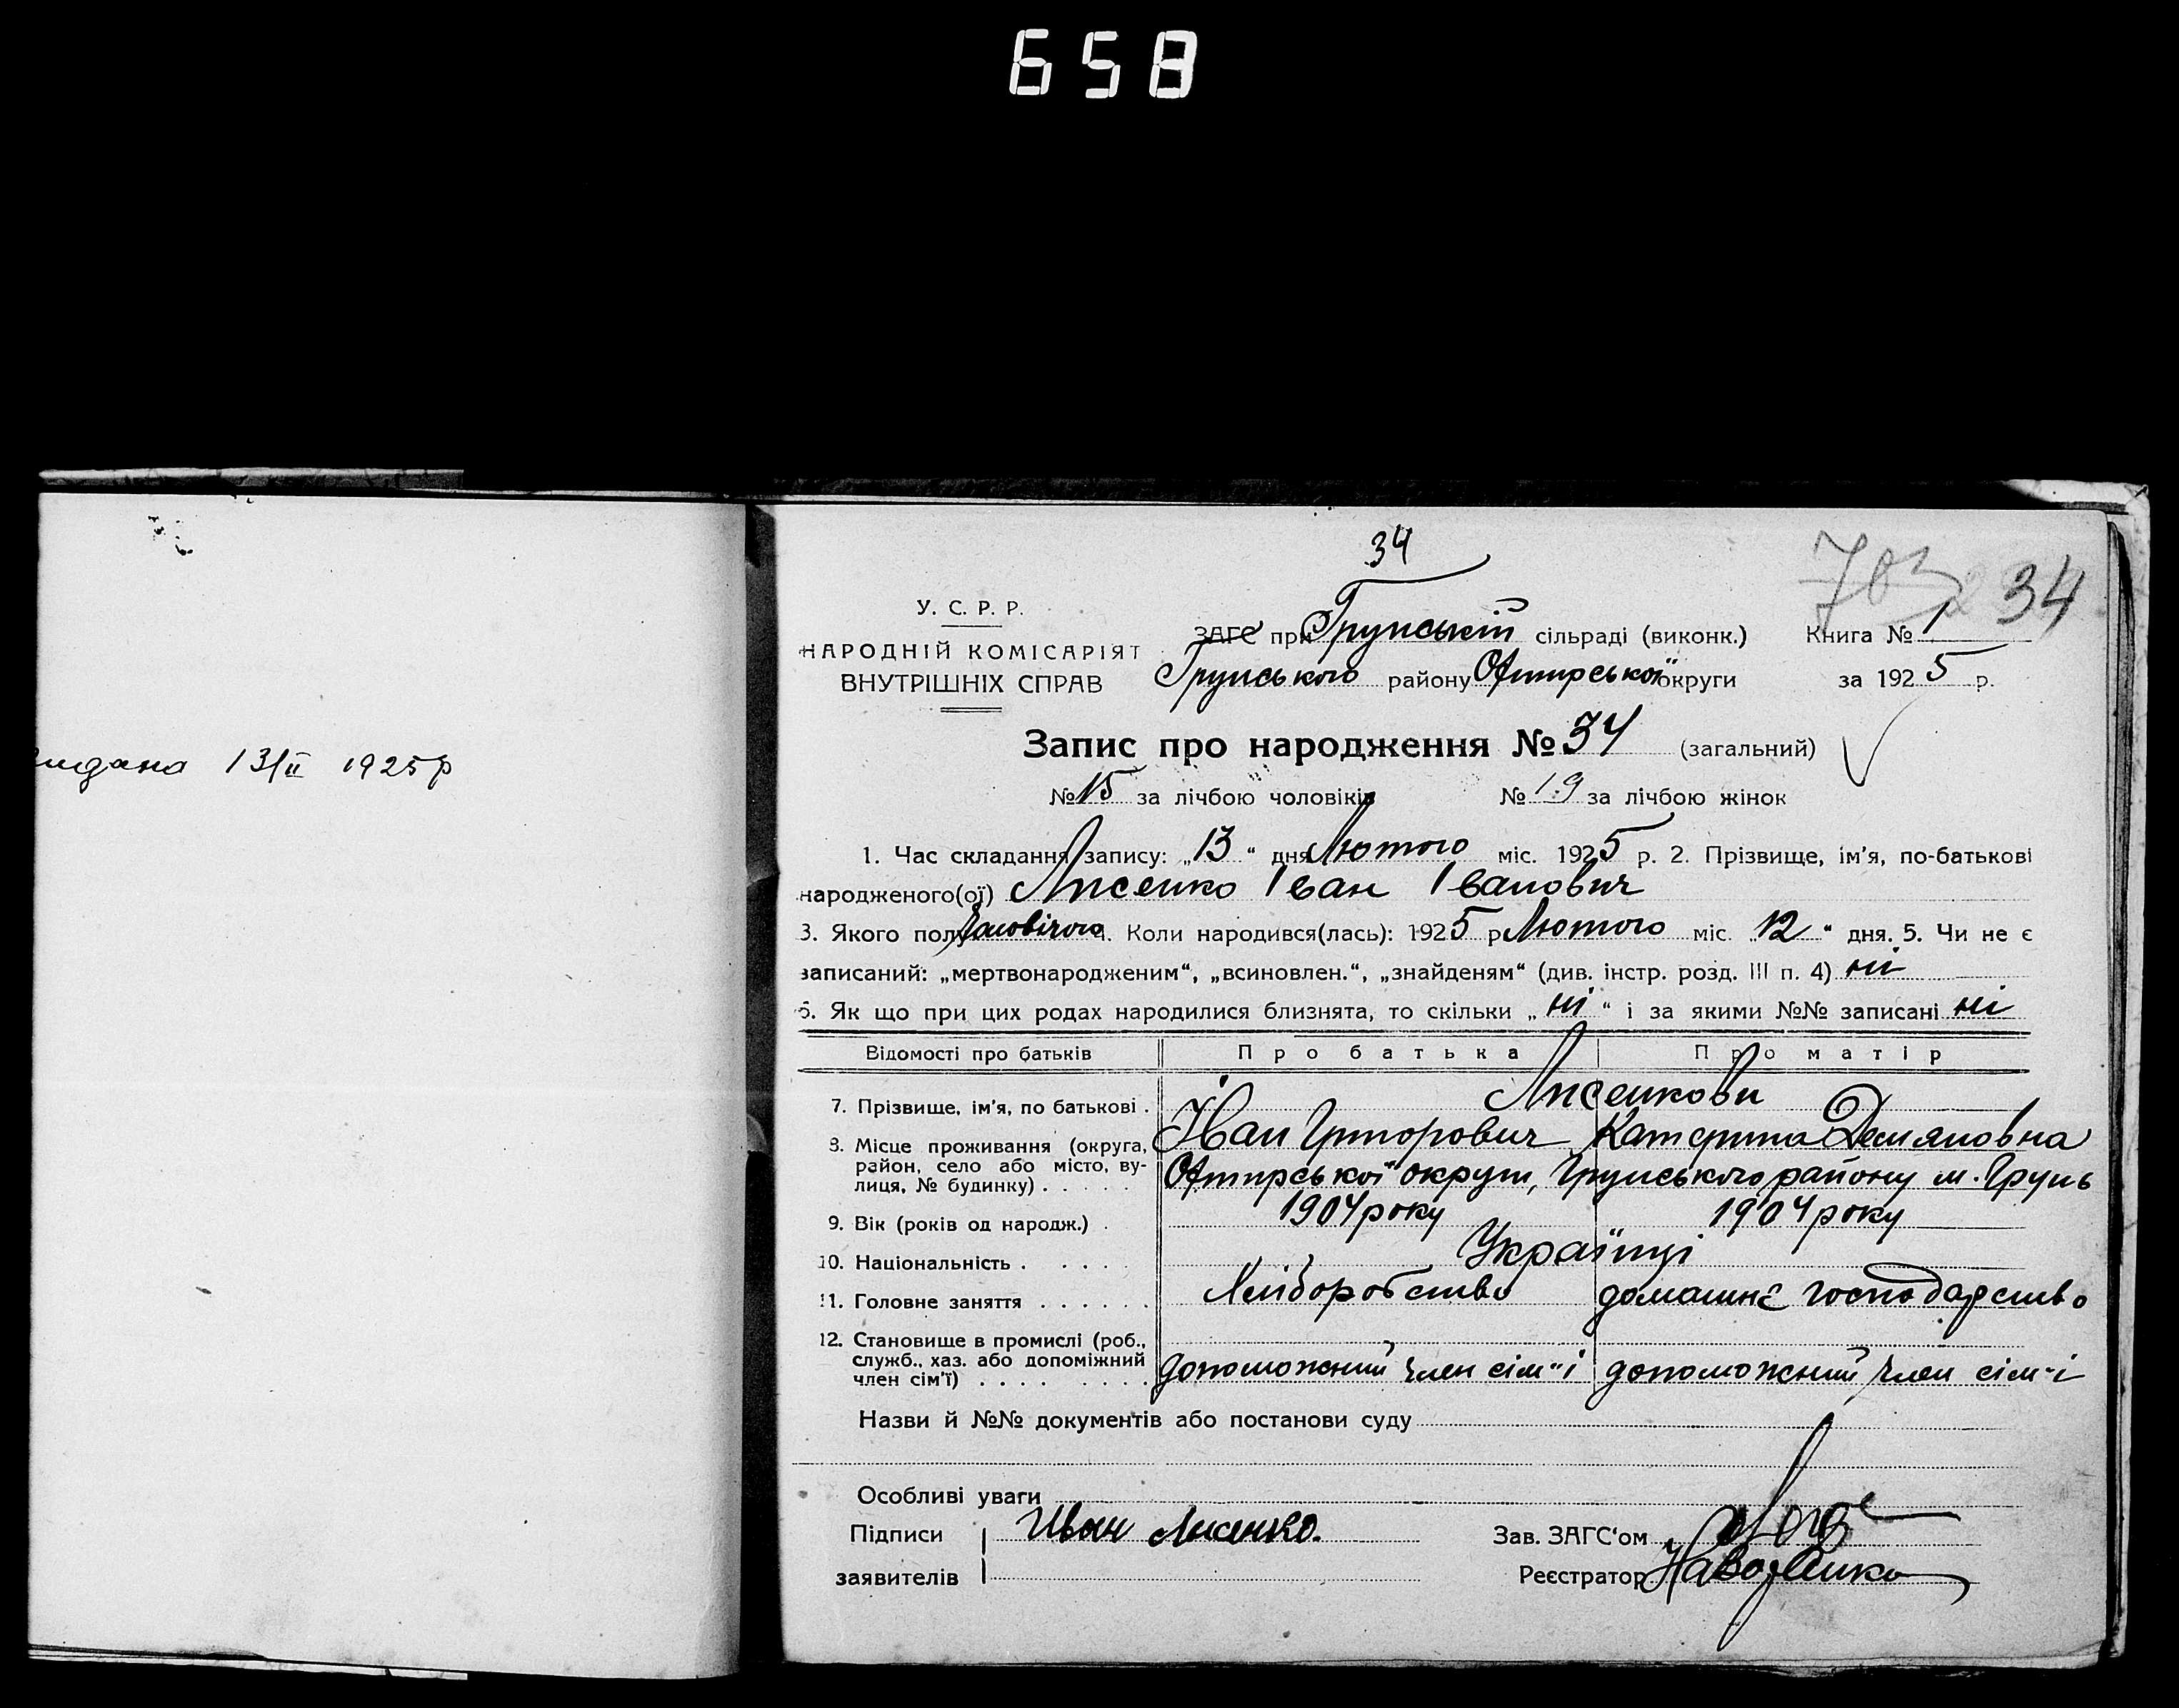 658
видана 13/II 1925р
34
34
У. С. Р. Р.
НАРОДНІЙ КОМІСАРІЯТ
ВНУТРІШНІХ СПРАВ
ЗАГС при Грунській сільраді (виконк.) Книга № 1
Грунського району Охтирської округи за 1925 р.
Запис про народження № 34 (загальний)
№ 15 за лічбою чоловіків № 19 за лічбою жінок
1. Час складання запису: „13“ дня Лютого міс. 1925 р. 2. Прізвище, ім'я, по-батькові
народженого(ої) Лисенко Іван Іванович
3. Якого полу чоловічого 4. Коли народився(лась): 1925 р Лютого міс. „12“ дня. 5. Чи не є
записаний: „мертвонародженим“, „всиновлен.“, „знайденям“ (див. інстр. розд. III п. 4) ні
6. Як що при цих родах народилися близнята, то скільки „ні“ і за якими №№ записані ні
Відомості про батьків Про батька Про матір
Лисенкови
7. Прізвище, ім'я, по батькові . Іван Григорович Катерина Демяновна
8. Місце проживання (округа,
район, село або місто, ву-
лиця, № будинку) . . . . . Охтирської округи, Грунського району м. Грунь
9. Вік (років од народж.) . 1904 року 1904 року
10. Національність . . . . . Українці
11. Головне заняття . . . . . . Хліборобство домашнє господарство
12. Становище в промислі (роб.,
служб., хаз. або допоміжний
член сім'ї) . . . . . . . . допоможний член сім"і допоможний член сім"і
Назви й №№ документів або постанови суду
Особливі уваги
Підписи Иван Лисенко. Зав. ЗАГС'ом
заявителів Реєстратор